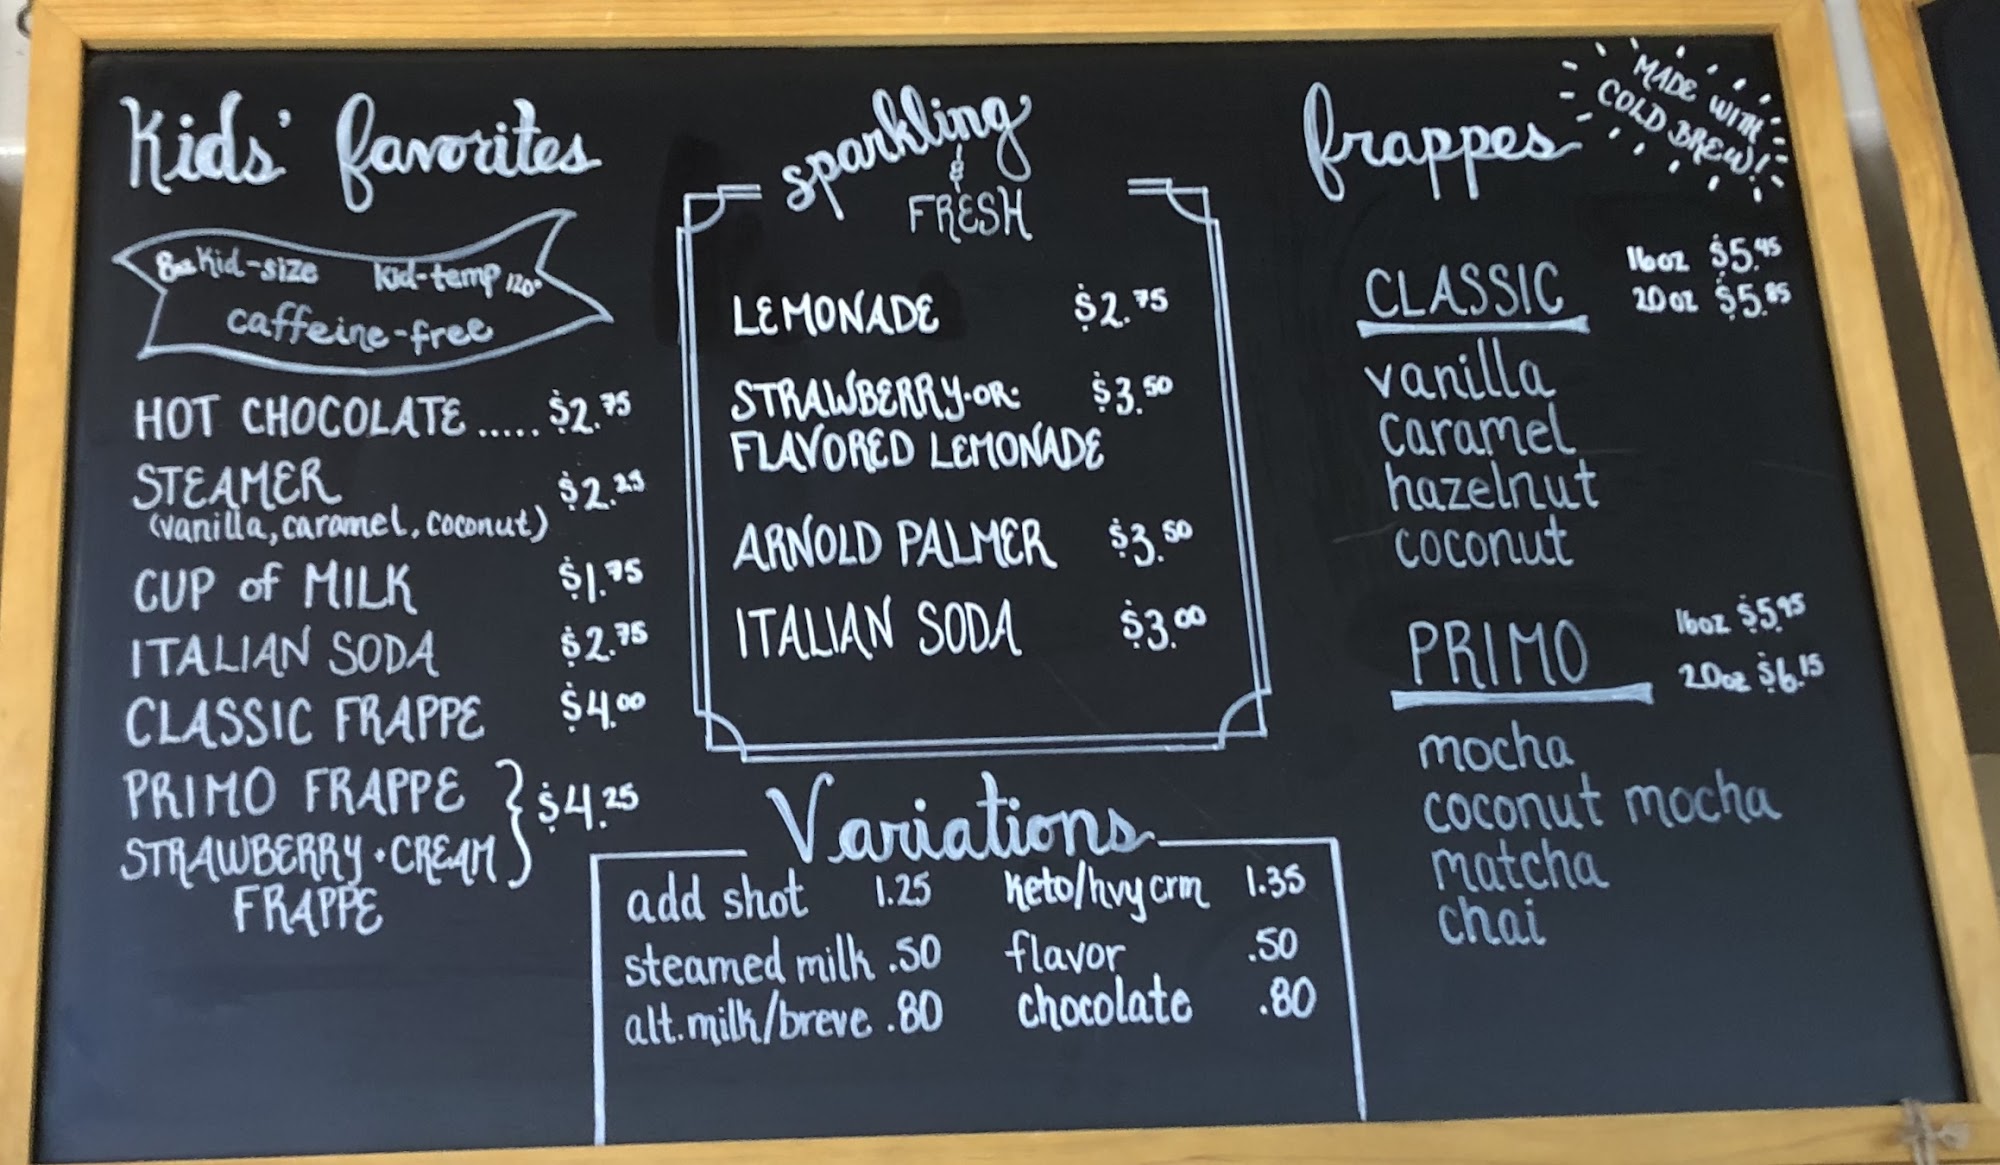 Kids' favorites
8oz Kid-size kid-temp 120°
caffeine-free
HOT CHOCOLATE ..... $2.75
STEAMER $2.25
(vanilla, caramel, coconut)
CUP of MILK $1.75
ITALIAN SODA $2.75
CLASSIC FRAPPE $4.00
PRIMO FRAPPE } $4.25
STRAWBERRY · CREAM
FRAPPE
sparkling
&
FRESH
LEMONADE $2.75
STRAWBERRY·OR· $3.50
FLAVORED LEMONADE
ARNOLD PALMER $3.50
ITALIAN SODA $3.00
Variations
add shot 1.25
steamed milk .50
alt. milk/breve .80
keto/hvy crm 1.35
flavor .50
chocolate .80
frappes
MADE WITH
COLD BREW!
CLASSIC 16oz $5.45
20oz $5.85
vanilla
caramel
hazelnut
coconut
PRIMO 16oz $5.95
20oz $6.15
mocha
coconut mocha
matcha
chai